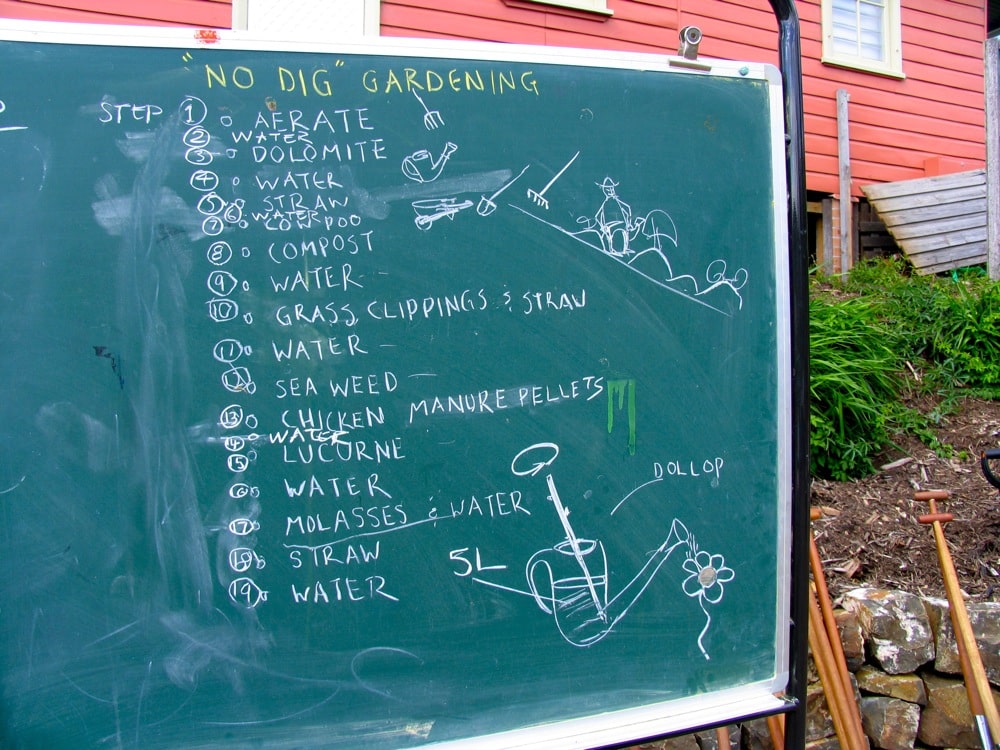 "NO DIG" GARDENING
STEP ① AERATE
② WATER
③ DOLOMITE
④ WATER
⑤ STRAW
⑥ WATER
⑦ COW POO
⑧ COMPOST
⑨ WATER
⑩ GRASS CLIPPINGS & STRAW
⑪ WATER
⑫ SEA WEED
⑬ CHICKEN MANURE PELLETS
⑭ WATER
⑮ LUCURNE
⑯ WATER
⑰ MOLASSES & WATER
⑱ STRAW
⑲ WATER
DOLLOP
5L